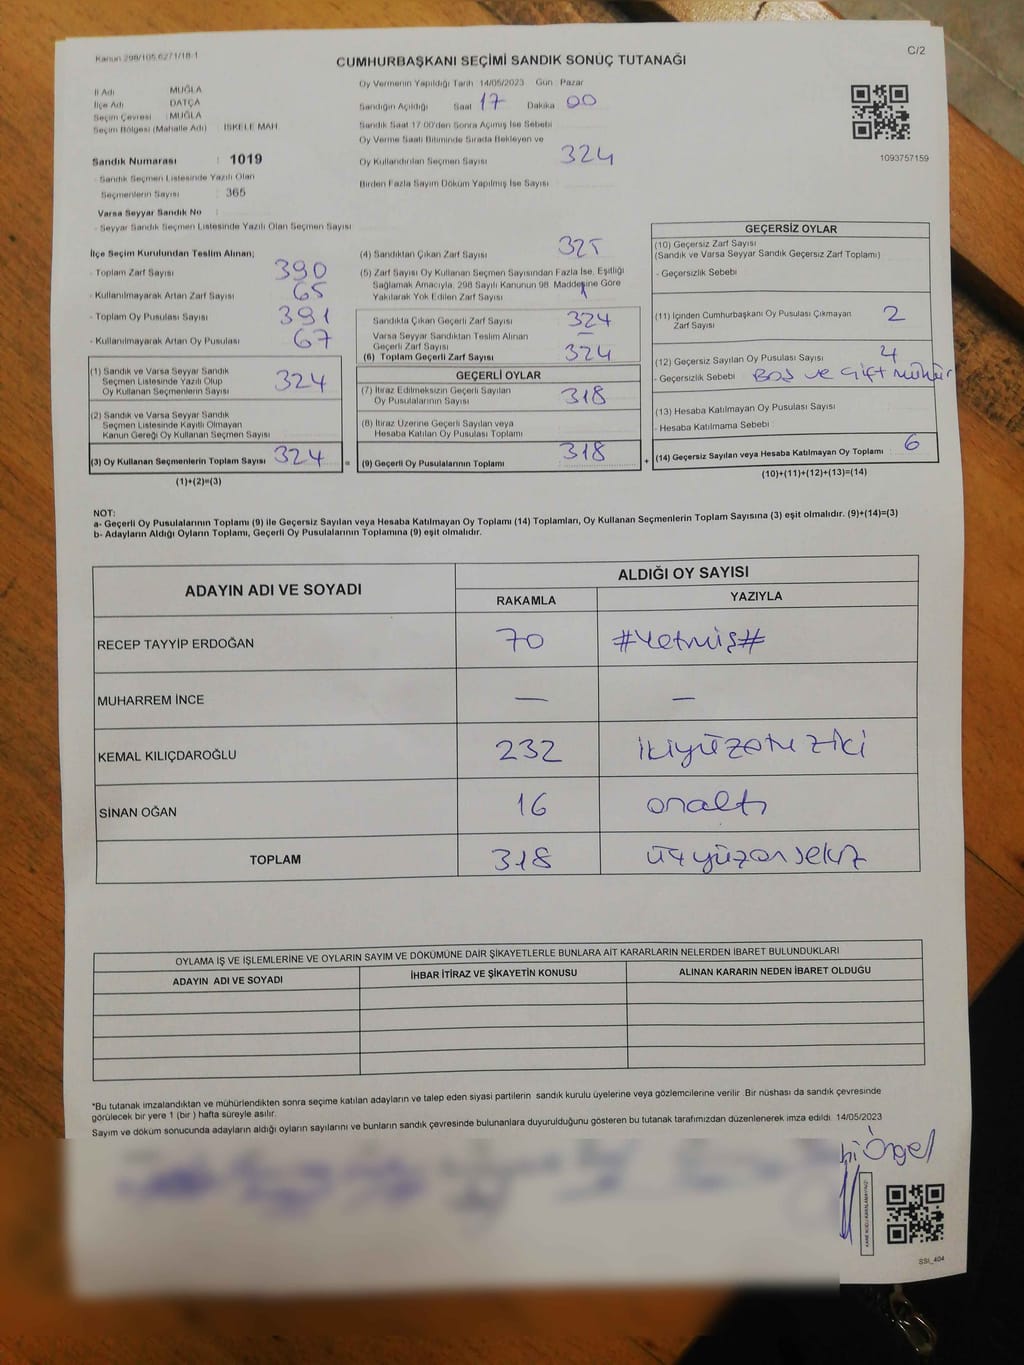 Kanun 298/105.6271/18-1
C/2
CUMHURBAŞKANI SEÇİMİ SANDIK SONUÇ TUTANAĞI
İl Adı MUĞLA
İlçe Adı DATÇA
Seçim Çevresi : MUĞLA
Seçim Bölgesi (Mahalle Adı) İSKELE MAH
Sandık Numarası : 1019
- Sandık Seçmen Listesinde Yazılı Olan
Seçmenlerin Sayısı : 365
Varsa Seyyar Sandık No :
- Seyyar Sandık Seçmen Listesinde Yazılı Olan Seçmen Sayısı
Oy Vermenin Yapıldığı Tarih 14/05/2023 Gün : Pazar
Sandığın Açıldığı Saat 17 Dakika 00
Sandık Saat 17:00'den Sonra Açılmış İse Sebebi
Oy Verme Saati Bitiminde Sırada Bekleyen ve
Oy Kullandırılan Seçmen Sayısı 324
Birden Fazla Sayım Döküm Yapılmış İse Sayısı
1093757159
İlçe Seçim Kurulundan Teslim Alınan;
- Toplam Zarf Sayısı 390
- Kullanılmayarak Artan Zarf Sayısı 65
- Toplam Oy Pusulası Sayısı 391
- Kullanılmayarak Artan Oy Pusulası 67
(1) Sandık ve Varsa Seyyar Sandık
Seçmen Listesinde Yazılı Olup
Oy Kullanan Seçmen Sayısı 324
(2) Sandık ve Varsa Seyyar Sandık
Seçmen Listesinde Kayıtlı Olmayan
Kanun Gereği Oy Kullanan Seçmen Sayısı
(3) Oy Kullanan Seçmenlerin Toplam Sayısı 324
(1)+(2)=(3)
(4) Sandıktan Çıkan Zarf Sayısı 325
(5) Zarf Sayısı Oy Kullanan Seçmen Sayısından Fazla İse, Eşitliği
Sağlamak Amacıyla, 298 Sayılı Kanunun 98. Maddesine Göre
Yakılarak Yok Edilen Zarf Sayısı 1
Sandıkta Çıkan Geçerli Zarf Sayısı 324
Varsa Seyyar Sandıktan Teslim Alınan
Geçerli Zarf Sayısı —
(6) Toplam Geçerli Zarf Sayısı 324
GEÇERLİ OYLAR
(7) İtiraz Edilmeksizin Geçerli Sayılan
Oy Pusulalarının Sayısı 318
(8) İtiraz Üzerine Geçerli Sayılan veya
Hesaba Katılan Oy Pusulası Toplamı
= (9) Geçerli Oy Pusulalarının Toplamı 318 +
GEÇERSİZ OYLAR
(10) Geçersiz Zarf Sayısı
(Sandık ve Varsa Seyyar Sandık Geçersiz Zarf Toplamı)
- Geçersizlik Sebebi
(11) İçinden Cumhurbaşkanı Oy Pusulası Çıkmayan
Zarf Sayısı 2
(12) Geçersiz Sayılan Oy Pusulası Sayısı 4
- Geçersizlik Sebebi Boş ve Çift Mühür
(13) Hesaba Katılmayan Oy Pusulası Sayısı
- Hesaba Katılmama Sebebi
(14) Geçersiz Sayılan veya Hesaba Katılmayan Oy Toplamı 6
(10)+(11)+(12)+(13)=(14)
NOT:
a- Geçerli Oy Pusulalarının Toplamı (9) ile Geçersiz Sayılan veya Hesaba Katılmayan Oy Toplamı (14) Toplamları, Oy Kullanan Seçmenlerin Toplam Sayısına (3) eşit olmalıdır. (9)+(14)=(3)
b- Adayların Aldığı Oyların Toplamı, Geçerli Oy Pusulalarının Toplamına (9) eşit olmalıdır.
ADAYIN ADI VE SOYADI
ALDIĞI OY SAYISI
RAKAMLA YAZIYLA
RECEP TAYYİP ERDOĞAN 70 #Yetmiş#
MUHARREM İNCE — —
KEMAL KILIÇDAROĞLU 232 ikiyüzotuziki
SİNAN OĞAN 16 onaltı
TOPLAM 318 üçyüzonsekiz
OYLAMA İŞ VE İŞLEMLERİNE VE OYLARIN SAYIM VE DÖKÜMÜNE DAİR ŞİKAYETLERLE BUNLARA AİT KARARLARIN NELERDEN İBARET BULUNDUKLARI
ADAYIN ADI VE SOYADI İHBAR İTİRAZ VE ŞİKAYETİN KONUSU ALINAN KARARIN NEDEN İBARET OLDUĞU
*Bu tutanak imzalandıktan ve mühürlendikten sonra seçime katılan adayların ve talep eden siyasi partilerin sandık kurulu üyelerine veya gözlemcilerine verilir. Bir nüshası da sandık çevresinde
görülecek bir yere 1 (bir) hafta süreyle asılır.
Sayım ve döküm sonucunda adayların aldığı oyların sayılarını ve bunların sandık çevresinde bulunanlara duyurulduğunu gösteren bu tutanak tarafımızdan düzenlenerek imza edildi. 14/05/2023
Öngel
SSI_404